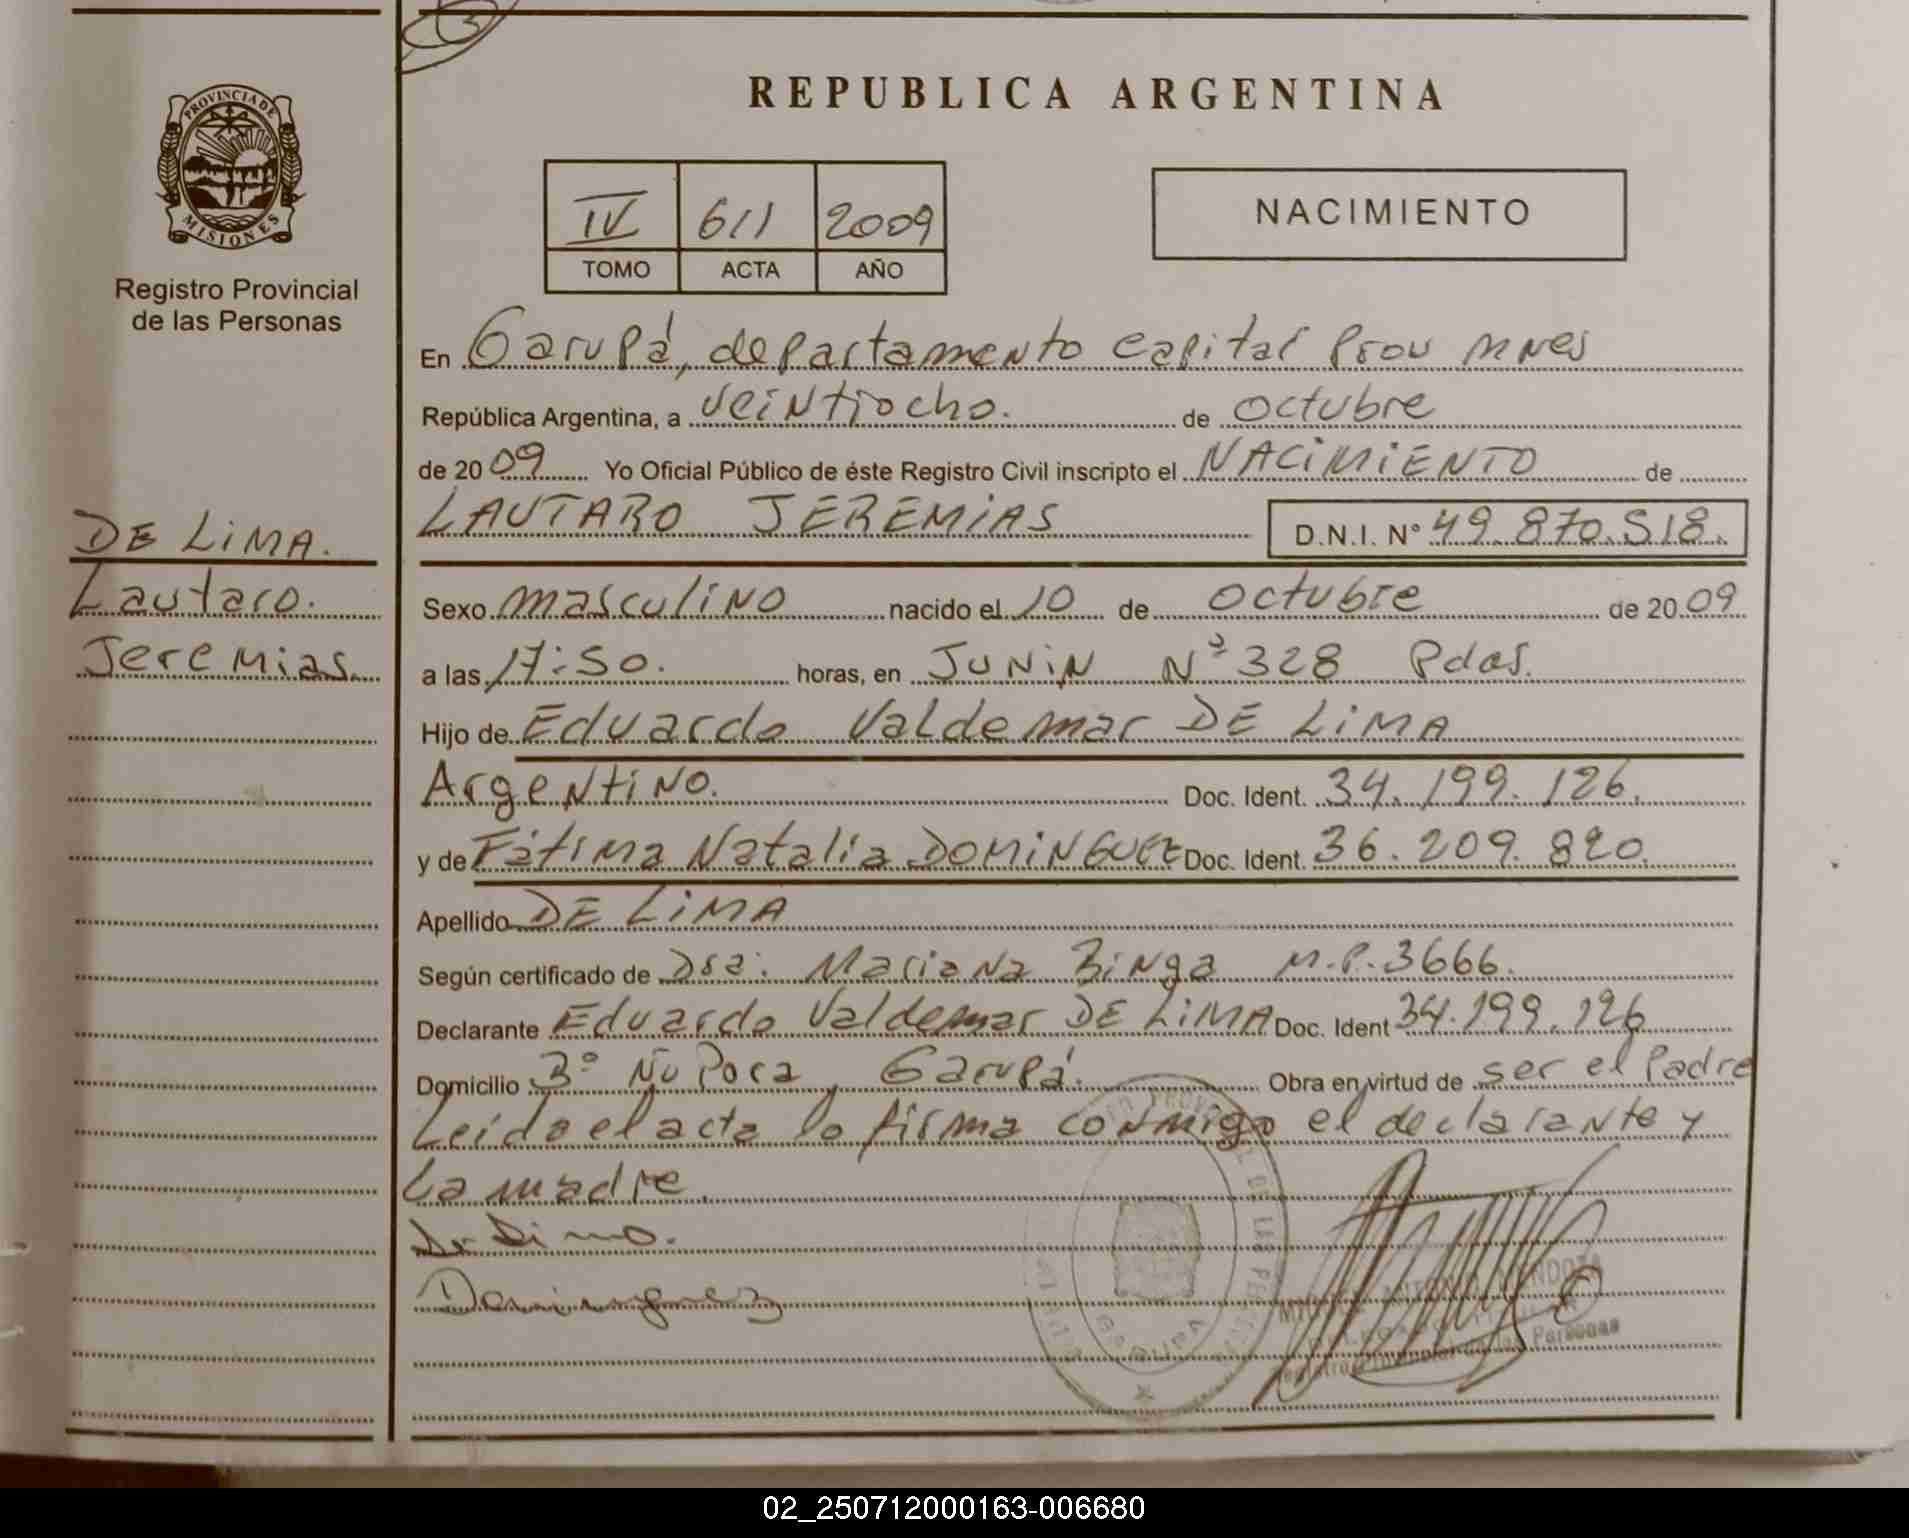 REPUBLICA ARGENTINA
PROVINCIA DE
MISIONES
Registro Provincial
de las Personas
IV 611 2009
TOMO ACTA AÑO
NACIMIENTO
En Garupá, departamento capital Prov Mnes
República Argentina, a veintiocho. de octubre
de 2009 Yo Oficial Público de éste Registro Civil inscripto el NACIMIENTO de
LAUTARO JEREMIAS D.N.I. Nº 49.870.518.
DE LIMA.
Lautaro.
Jeremias.
Sexo masculino nacido el 10 de octubre de 2009
a las 17:50. horas, en JUNIN Nº 328 Pdas.
Hijo de Eduardo Valdemar DE LIMA
Argentino. Doc. Ident. 34.199.126.
y de Fátima Natalia DOMINGUEZ Doc. Ident. 36.209.820.
Apellido DE LIMA
Según certificado de Dra. Mariana Binga M.P. 3666.
Declarante Eduardo Valdemar DE LIMA Doc. Ident 34.199.126
Domicilio Bº Ñu Pora, Garupá. Obra en virtud de ser el Padre
Leida el acta lo firma conmigo el declarante y
La madre.
Dominguez
ANTONIO MENDOZA
Registro Provincial de las Personas
02_250712000163-006680